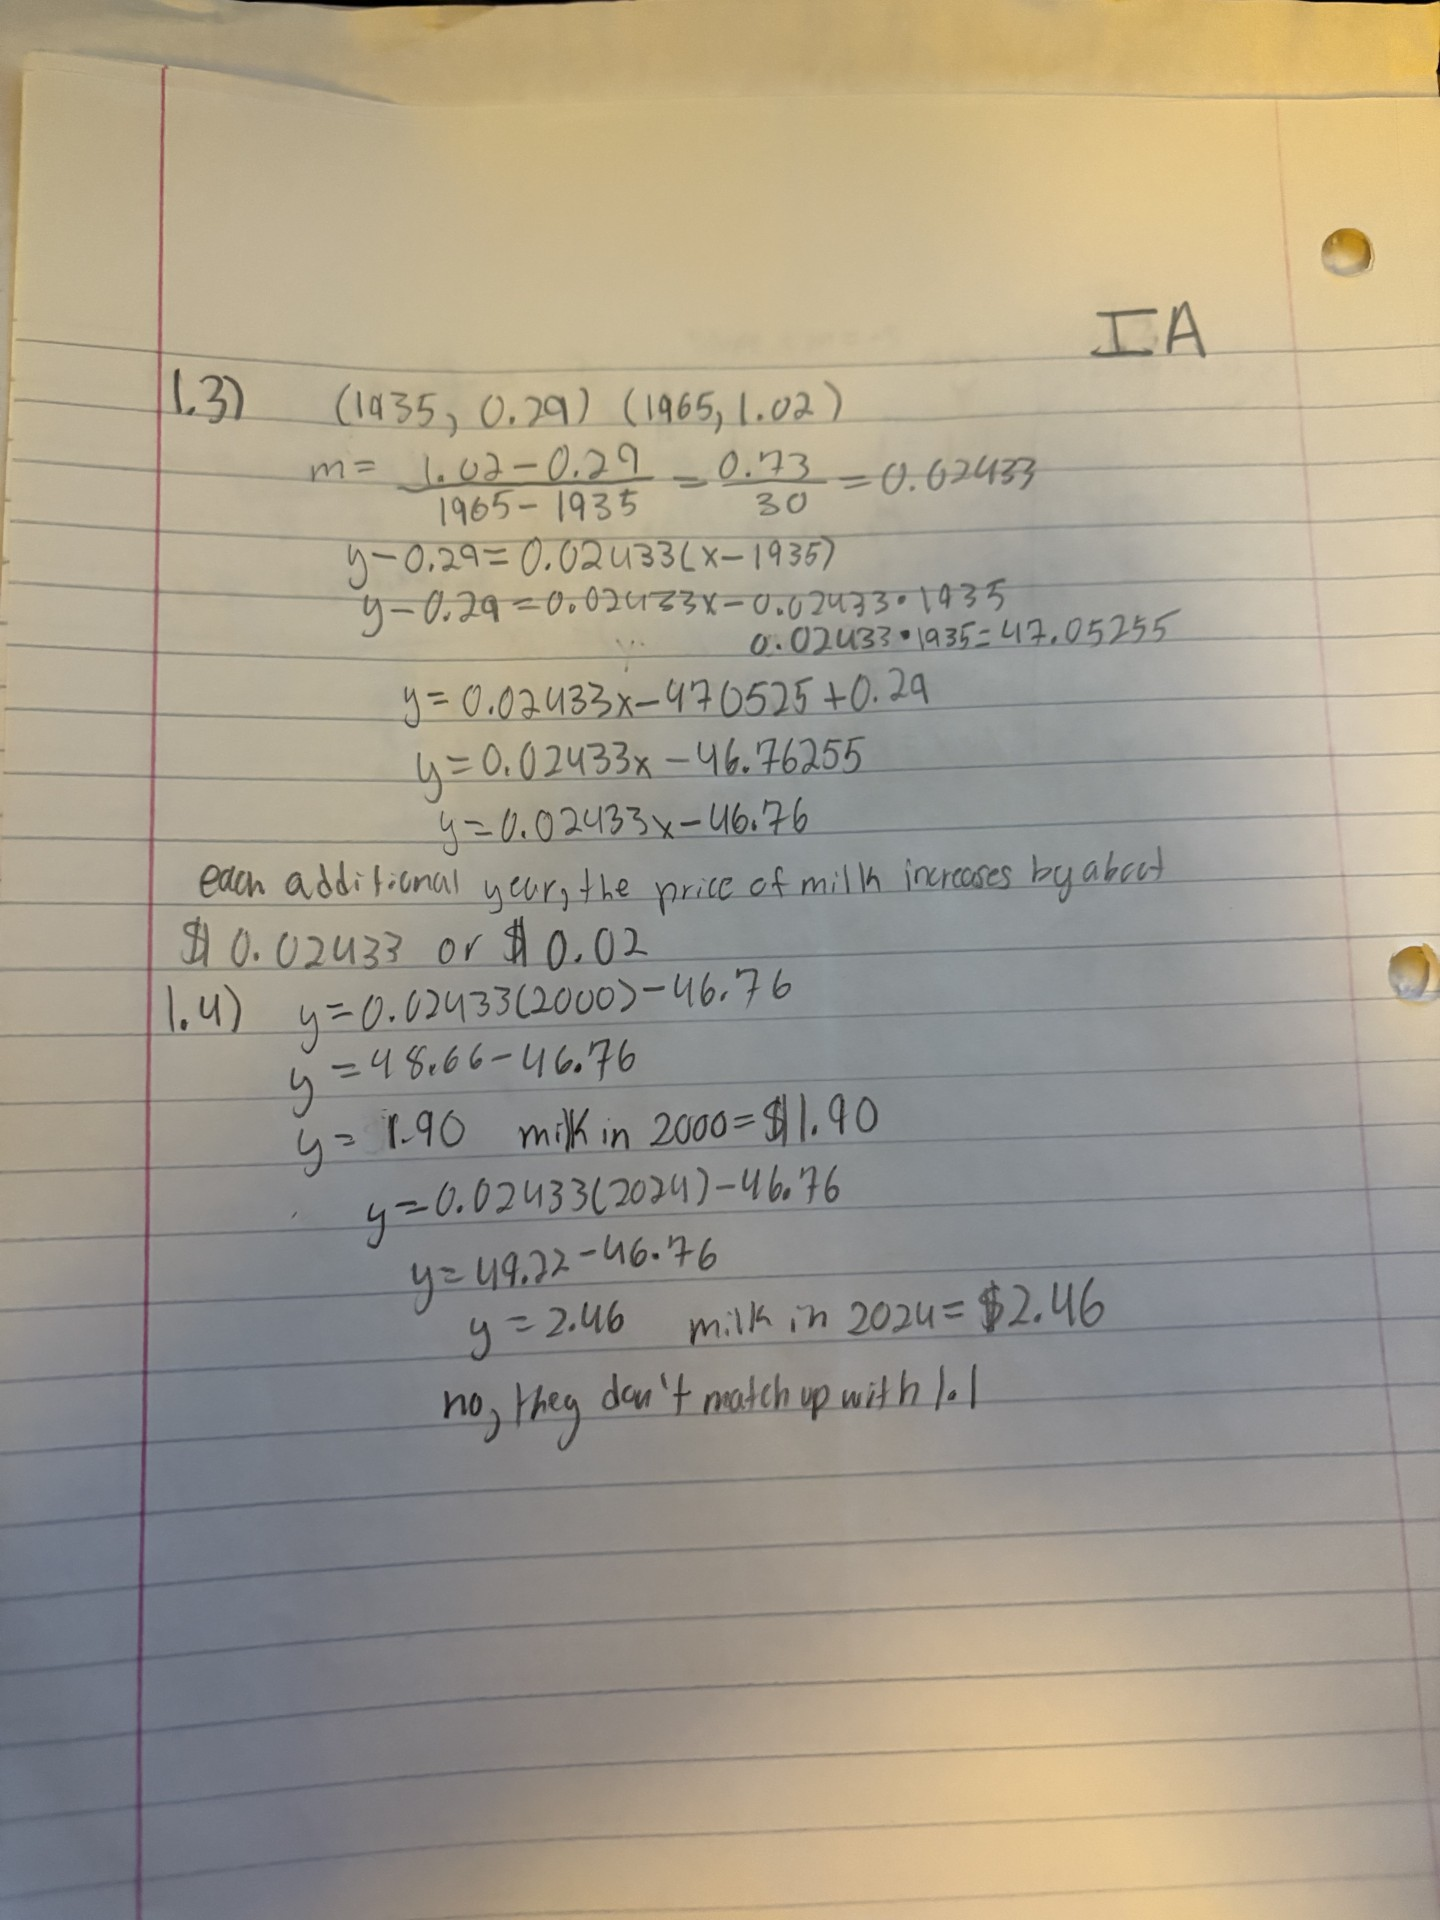 IA
1.3) (1935, 0.29) (1965, 1.02)
m = 1.02 - 0.29 / 1965 - 1935 = 0.73 / 30 = 0.02433
y - 0.29 = 0.02433(x - 1935)
y - 0.29 = 0.02433x - 0.02433 • 1935
0.02433 • 1935 = 47.05255
y = 0.02433x - 470525 + 0.29
y = 0.02433x - 46.76255
y = 0.02433x - 46.76
each additional year, the price of milk increases by about
$0.02433 or $0.02
1.4) y = 0.02433(2000) - 46.76
y = 48.66 - 46.76
y = 1.90 milk in 2000 = $1.90
y = 0.02433(2024) - 46.76
y = 49.22 - 46.76
y = 2.46 milk in 2024 = $2.46
no, they don't match up with 1.1